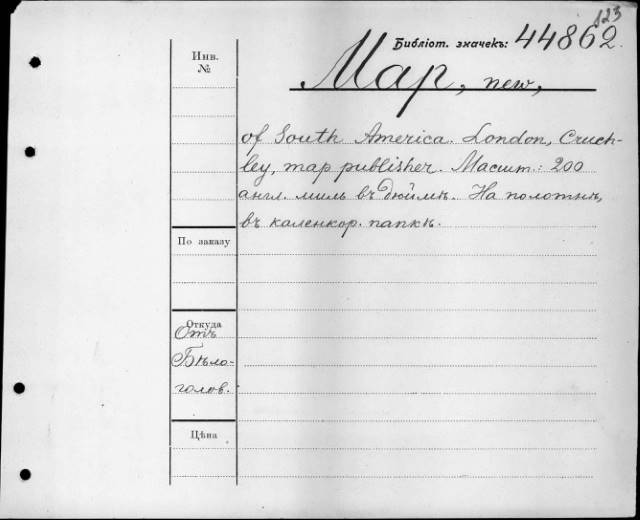 123
Библіот. значекъ: 44862.
Инв.
№
Map, new,
of South America. London, Cruch-
ley, map publisher. Масшт.: 200
англ. миль въ дюймѣ. На полотнѣ,
въ каленкор. папкѣ.
По заказу
Откуда
Отъ
Бѣло-
голов.
Цѣна